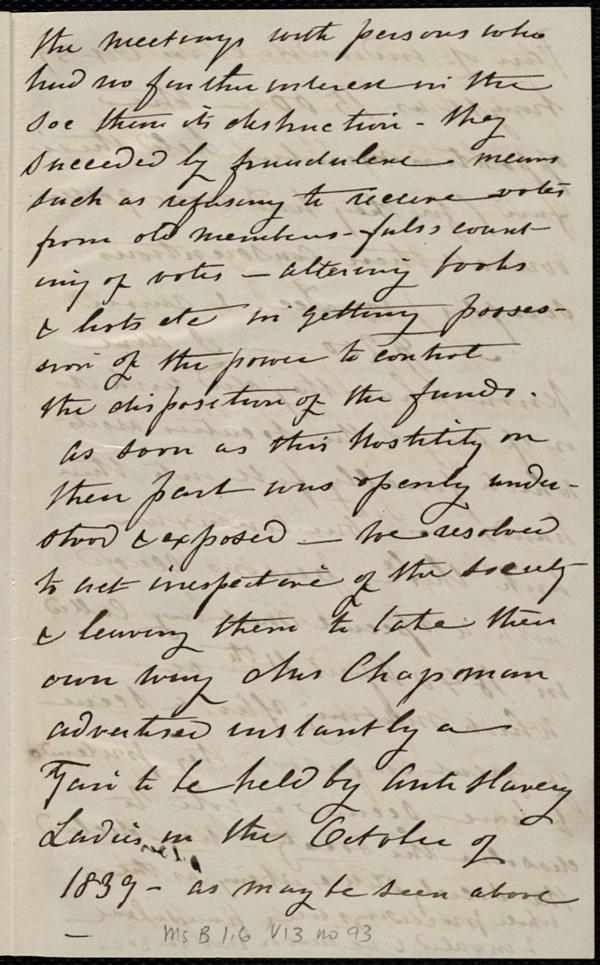 the meetings with persons who
had no further interest in the
soc than its destruction - they
succeeded by fraudulent means
such as refusing to receive votes
from old members - false count-
ing of votes - altering books
& lists etc in getting posses-
sion of the power to control
the disposition of the funds.
As soon as this hostility on
their part was openly under-
stood & exposed - we resolved
to act irrespective of the society
& leaving them to take their
own way Mrs Chapman
advertised instantly a
Fair to be held by Anti Slavery
Ladies in the October of
1839 - as may be seen above
-
Ms B 1.6 V13 no 93